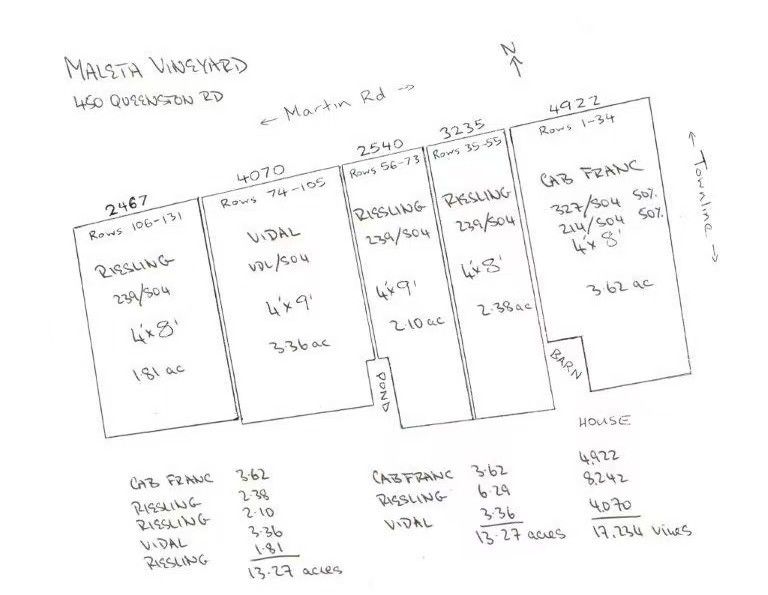 MALETA VINEYARD
450 QUEENSTON RD
N
← Martin Rd →
← Townline →
2467
Rows 106-131
RIESLING
239/SO4
4'x8'
1.81 ac
4070
Rows 74-105
VIDAL
VDL/SO4
4'x9'
3.36 ac
2540
Rows 56-73
RIESLING
239/SO4
4'x9'
2.10 ac
POND
3235
Rows 35-55
RIESLING
239/SO4
4'x8'
2.38 ac
4922
Rows 1-34
CAB FRANC
327/SO4 50%
214/SO4 50%
4'x8'
3.62 ac
BARN
HOUSE
CAB FRANC 3.62
RIESLING 2.38
RIESLING 2.10
VIDAL 3.36
RIESLING 1.81
13.27 acres
CAB FRANC 3.62
RIESLING 6.29
VIDAL 3.36
13.27 acres
4,922
8,242
4,070
17,234 vines